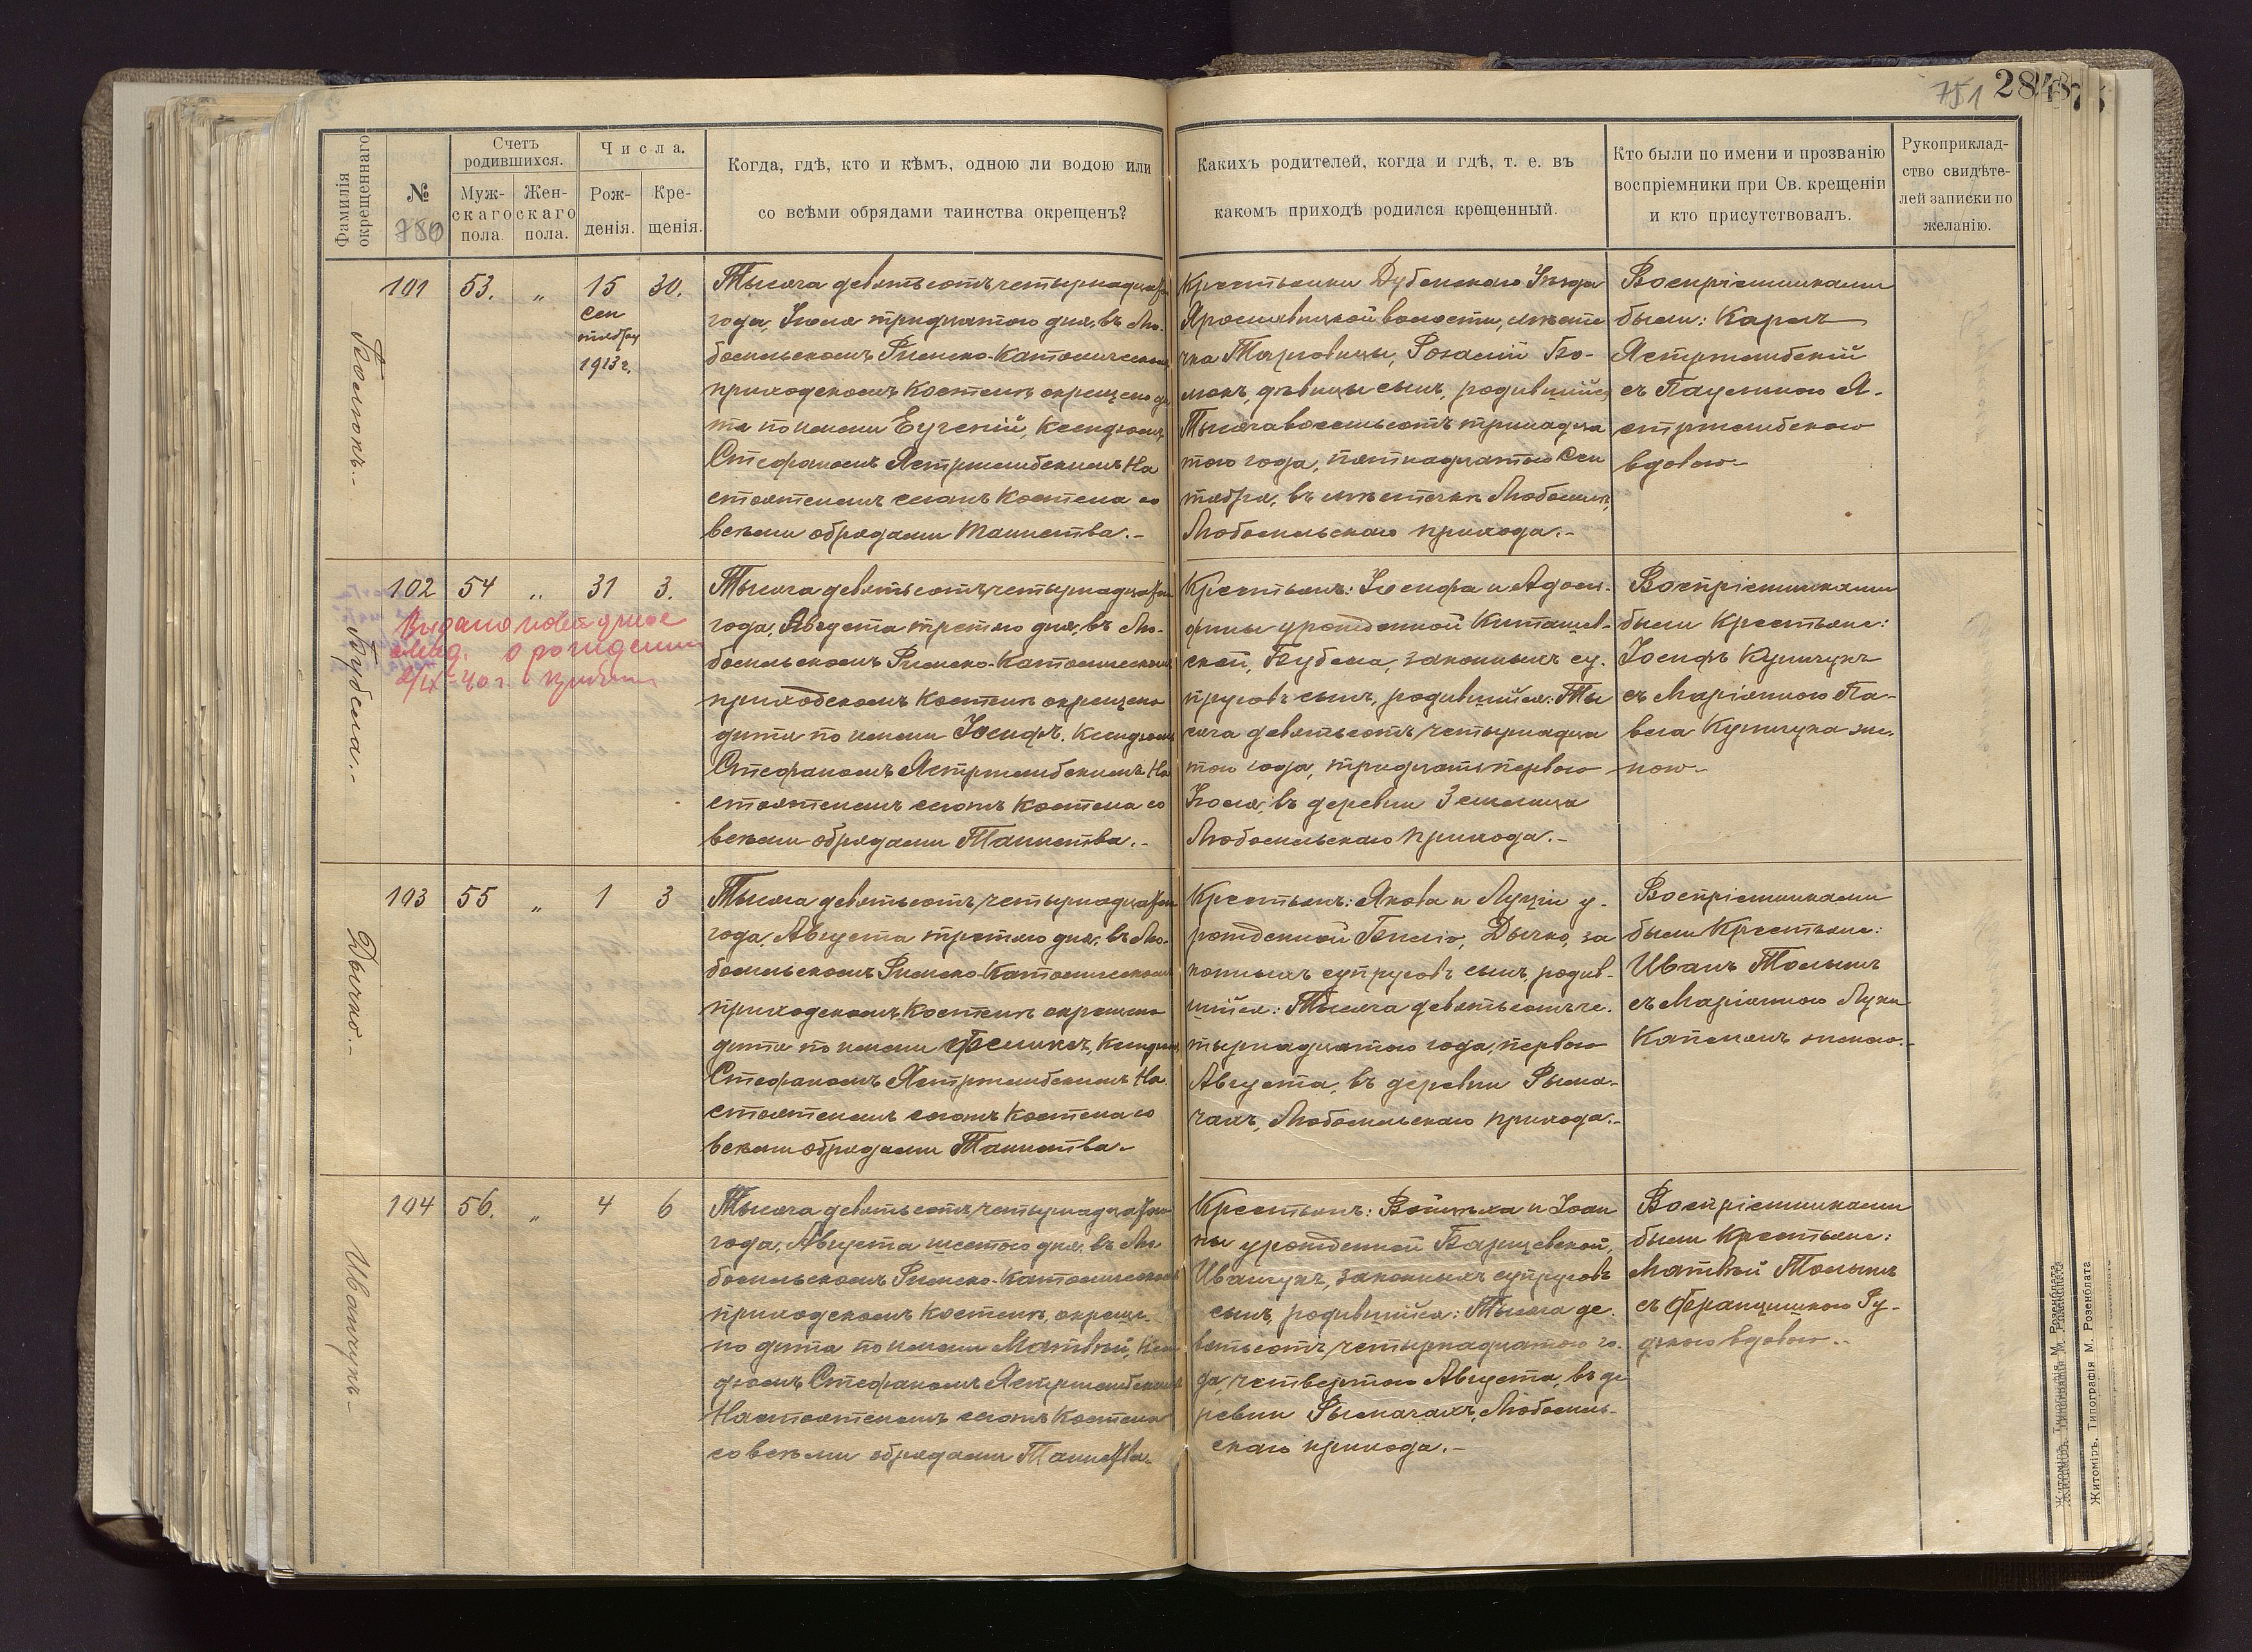 751 284
Фамилія окрещеннаго
№
780
Счетъ родившихся.
Муж-скаго пола.
Жен-скаго пола.
Числа.
Рож-денія.
Кре-щенія.
Когда, гдѣ, кто и кѣмъ, одною ли водою или
со всѣми обрядами таинства окрещенъ?
Какихъ родителей, когда и гдѣ, т. е. въ
какомъ приходѣ родился крещенный.
Кто были по имени и прозванію
воспріемники при Св. крещеніи
и кто присутствовалъ.
Рукоприклад-
ство свидѣте-
лей записки по
желанію.
101 53. „ 15 30.
Сен
тября
1913 г.
Тысяча девятьсотъ четырнадцатаго
года, Іюля тридцатаго дня, въ Лю-
бомльскомъ Римско-Католическомъ
приходскомъ Костелѣ окрещено ди
тя по имени Евгеній, Ксендзомъ
Стефаномъ Ястржембскимъ На
стоятелемъ сего Костела со
всѣми обрядами Таинства.-
Крестьянки Дубенскаго Уѣзда
Ярославицкой волости, мѣсте
чка Торговицы, Розаліи Бо-
лѣвицы сынъ, родившійся
Тысяча восемьсотъ тринадца
таго года, пятнадцатаго Сен
тября, въ мѣстечкѣ Любомлѣ,
Любомльскаго прихода.-
Воспріемниками
были: Кароль
Ястржембскій
съ Паулиною Я-
стржембскою
вдовою-
102 54 „ 31 3.
Выдано повторное
свид. о рождении
2/IX-40 г.
Бубела.-
Тысяча девятьсотъ четырнадцатаго
года, Августа третьяго дня, въ Лю-
бомльскомъ Римско-Католическомъ
приходскомъ Костелѣ окрещено
дитя по имени Іосифъ, Ксендзомъ
Стефаномъ Ястржембскимъ На
стоятелемъ сего Костела со
всѣми обрядами Таинства.-
Крестьянъ: Іосифа и Адоль-
фины урожденной
ской, Бубела, законныхъ су-
пруговъ сынъ, родившійся: Ты
сяча девятьсотъ четырнадца
таго года, тридцать перваго
Іюля, въ деревни Землица
Любомльскаго прихода.-
Воспріемниками
были Крестьяне:
Іосифъ Кушчукъ
съ Маріянною Па-
вела Кушчука же-
ною-
103 55 „ 1 3
Дычко.-
Тысяча девятьсотъ четырнадцатаго
года, Августа третьяго дня, въ Лю-
бомльскомъ Римско-Католическомъ
приходскомъ Костелѣ окрещено
дитя по имени Феликсъ, Ксендзомъ
Стефаномъ Ястржембскимъ На-
стоятелемъ сего Костела со
всѣми обрядами Таинства-
Крестьянъ: Якова и Луціи у-
рожденной Дычко, за
конныхъ супруговъ сынъ, родив-
шійся: Тысяча девятьсотъ че-
тырнадцатаго года, перваго
Августа, въ деревни Рыма-
чахъ, Любомльскаго прихода.-
Воспріемниками
были Крестьяне:
Иванъ
съ Маріянною Луки
женою.-
104 56. „ 4 6
Иванчукъ-
Тысяча девятьсотъ четырнадцатаго
года, Августа шестого дня, въ Лю-
бомльскомъ Римско-Католическомъ
приходскомъ Костелѣ, окреще-
но дитя по имени Матвѣй, Ксен
дзомъ Стефаномъ Ястржембскимъ
Настоятелемъ сего Костела
со всѣми обрядами Таинства-
Крестьянъ: Войцѣха и Іоан
ны урожденной Барщевской,
Иванчукъ, законныхъ супруговъ
сынъ, родившійся: Тысяча де-
вятьсотъ четырнадцатаго го-
да, четвертаго Августа, въ де
ревни Рымачахъ, Любомль-
скаго прихода.-
Воспріемниками
были Крестьяне:
Матвѣй
съ Францишкою Ру-
дкою вдовою.-
Житоміръ, Типографія М. Розенблата